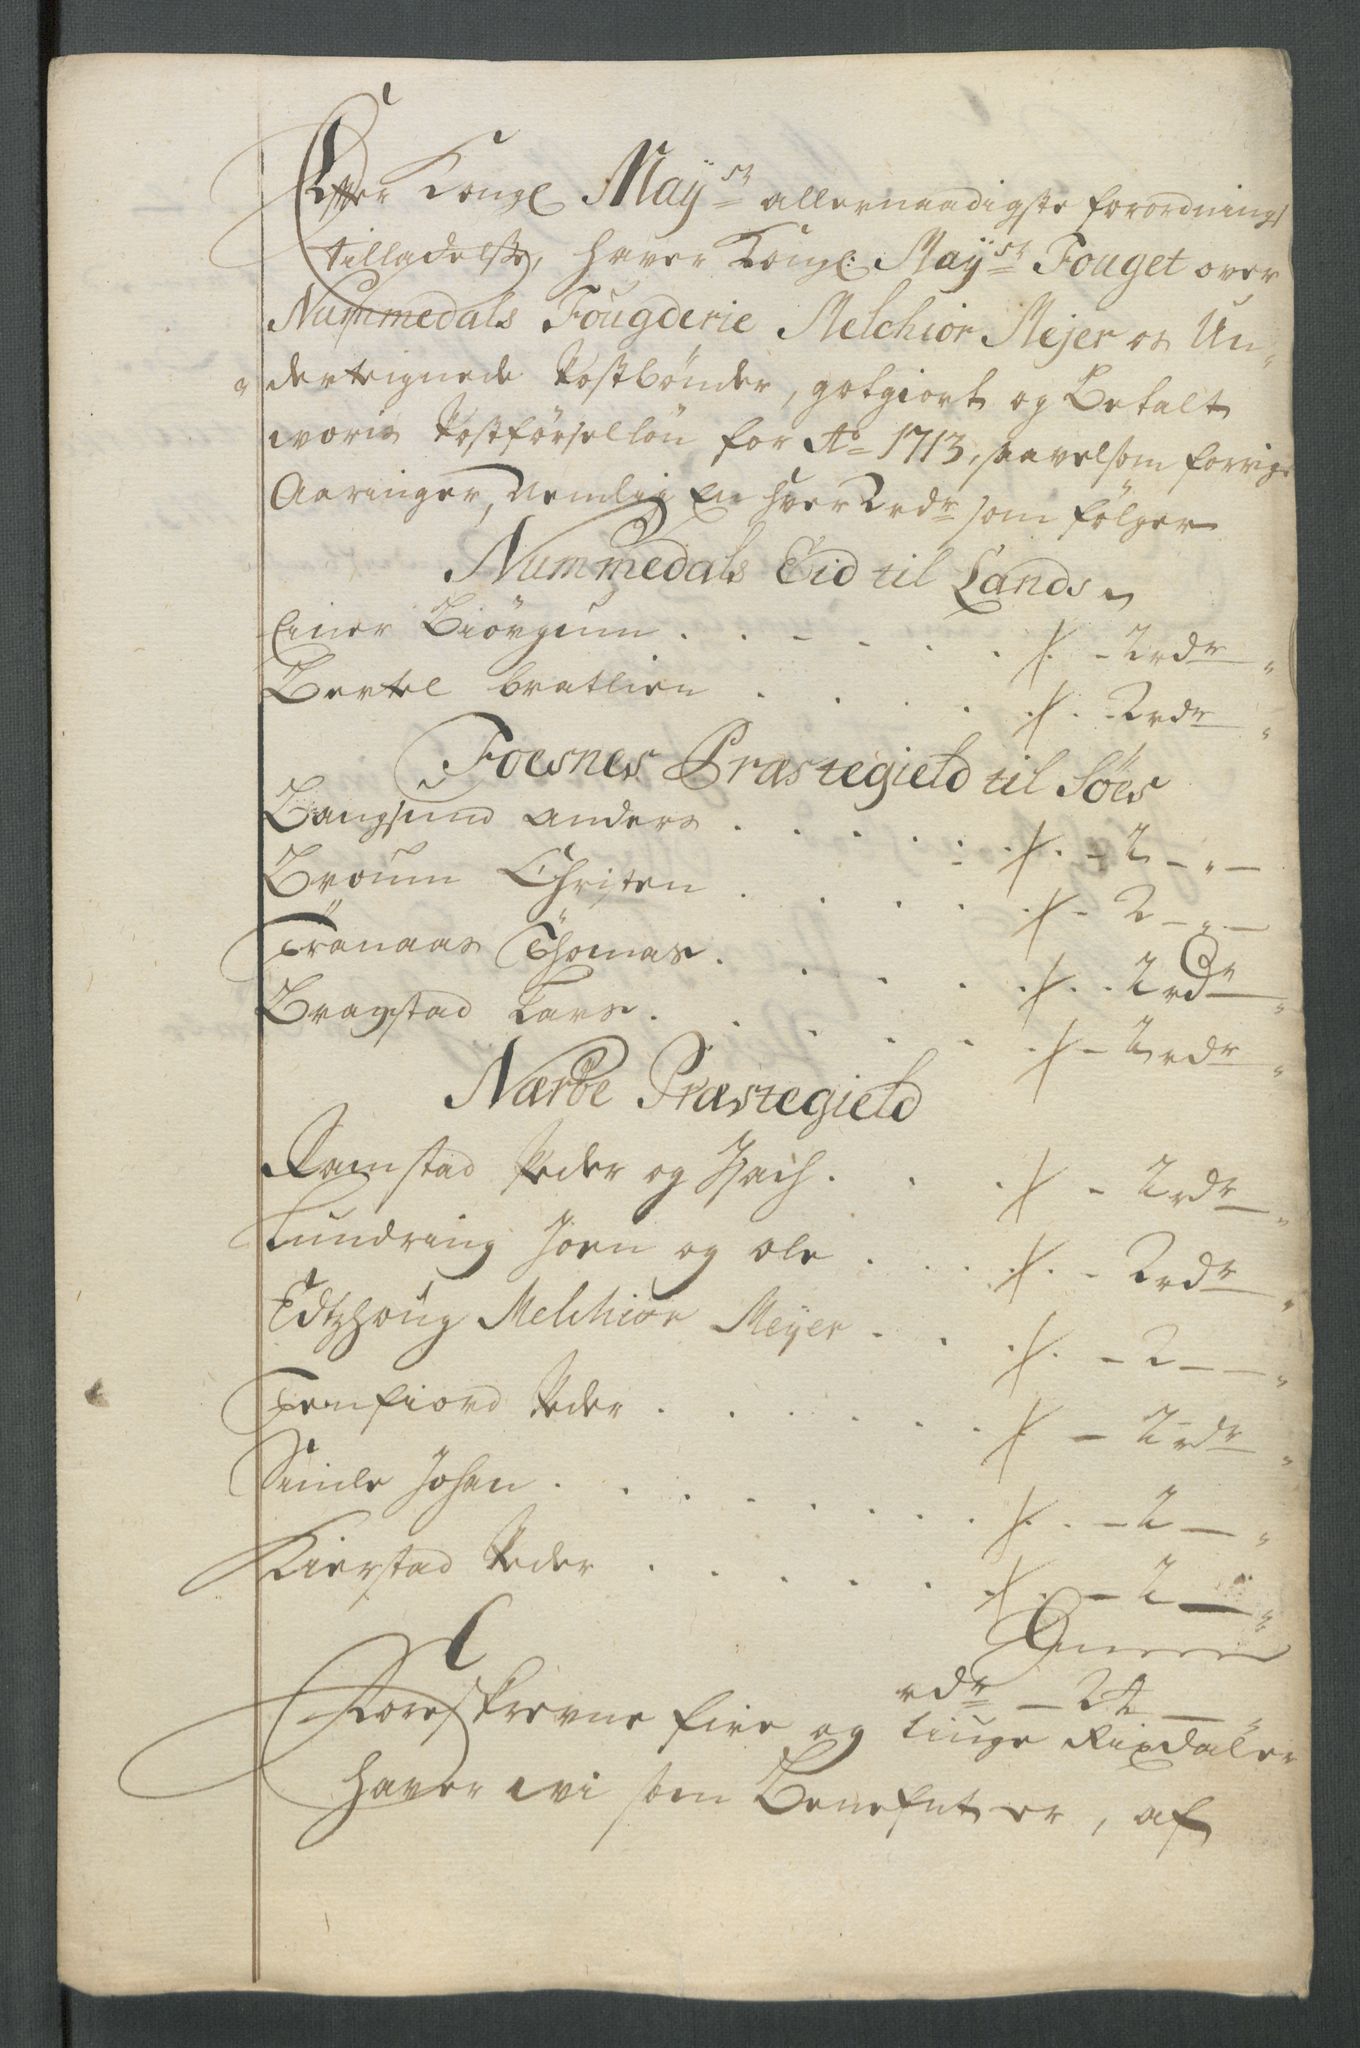 Efter Kongl Mayst allernaadigste forordnings
tilladelse, haver Kongl: Mayst Fouget over
Nummedals Fougderie Melchior Mejer os Un-
derteignede Postbønder, gotgiort og Betalt
woris Postførsel løn for Ao 1713, saavelsom forrige
Aaringer, Nemlig En hver 2 rdr som følger
Nummedals Eid til Lands
Einer Biörgum . . . . . . 2 rdr „
Bertel bratlien . . . . . 2 rdr „
Foesnes Præstegield til Søes
Bangsund Anders . . . . . 2 – „ –
Broum Christen . . . . . 2 – „ –
Tranaas Thomas . . . . . 2 rdr „
Bragstad Lars . . . . . . 2 rdr „
Nærøe Præstegield
Ramstad Peder og Isach . . . 2 rdr „
Lundring Joen og Ole . . . . 2 rdr „
Edtzhoug Melchior Meyer . . . 2 – „
Terfiord Peder . . . . . . 2 rdr „
Simle Johan . . . . . . . 2 – „
Kierstad Peder . . . . . . 2 – „
Summa
rdr – 24 – „
Foreskrevne fire og tiuge Rixdaler
haver wi som Benefnt er, af